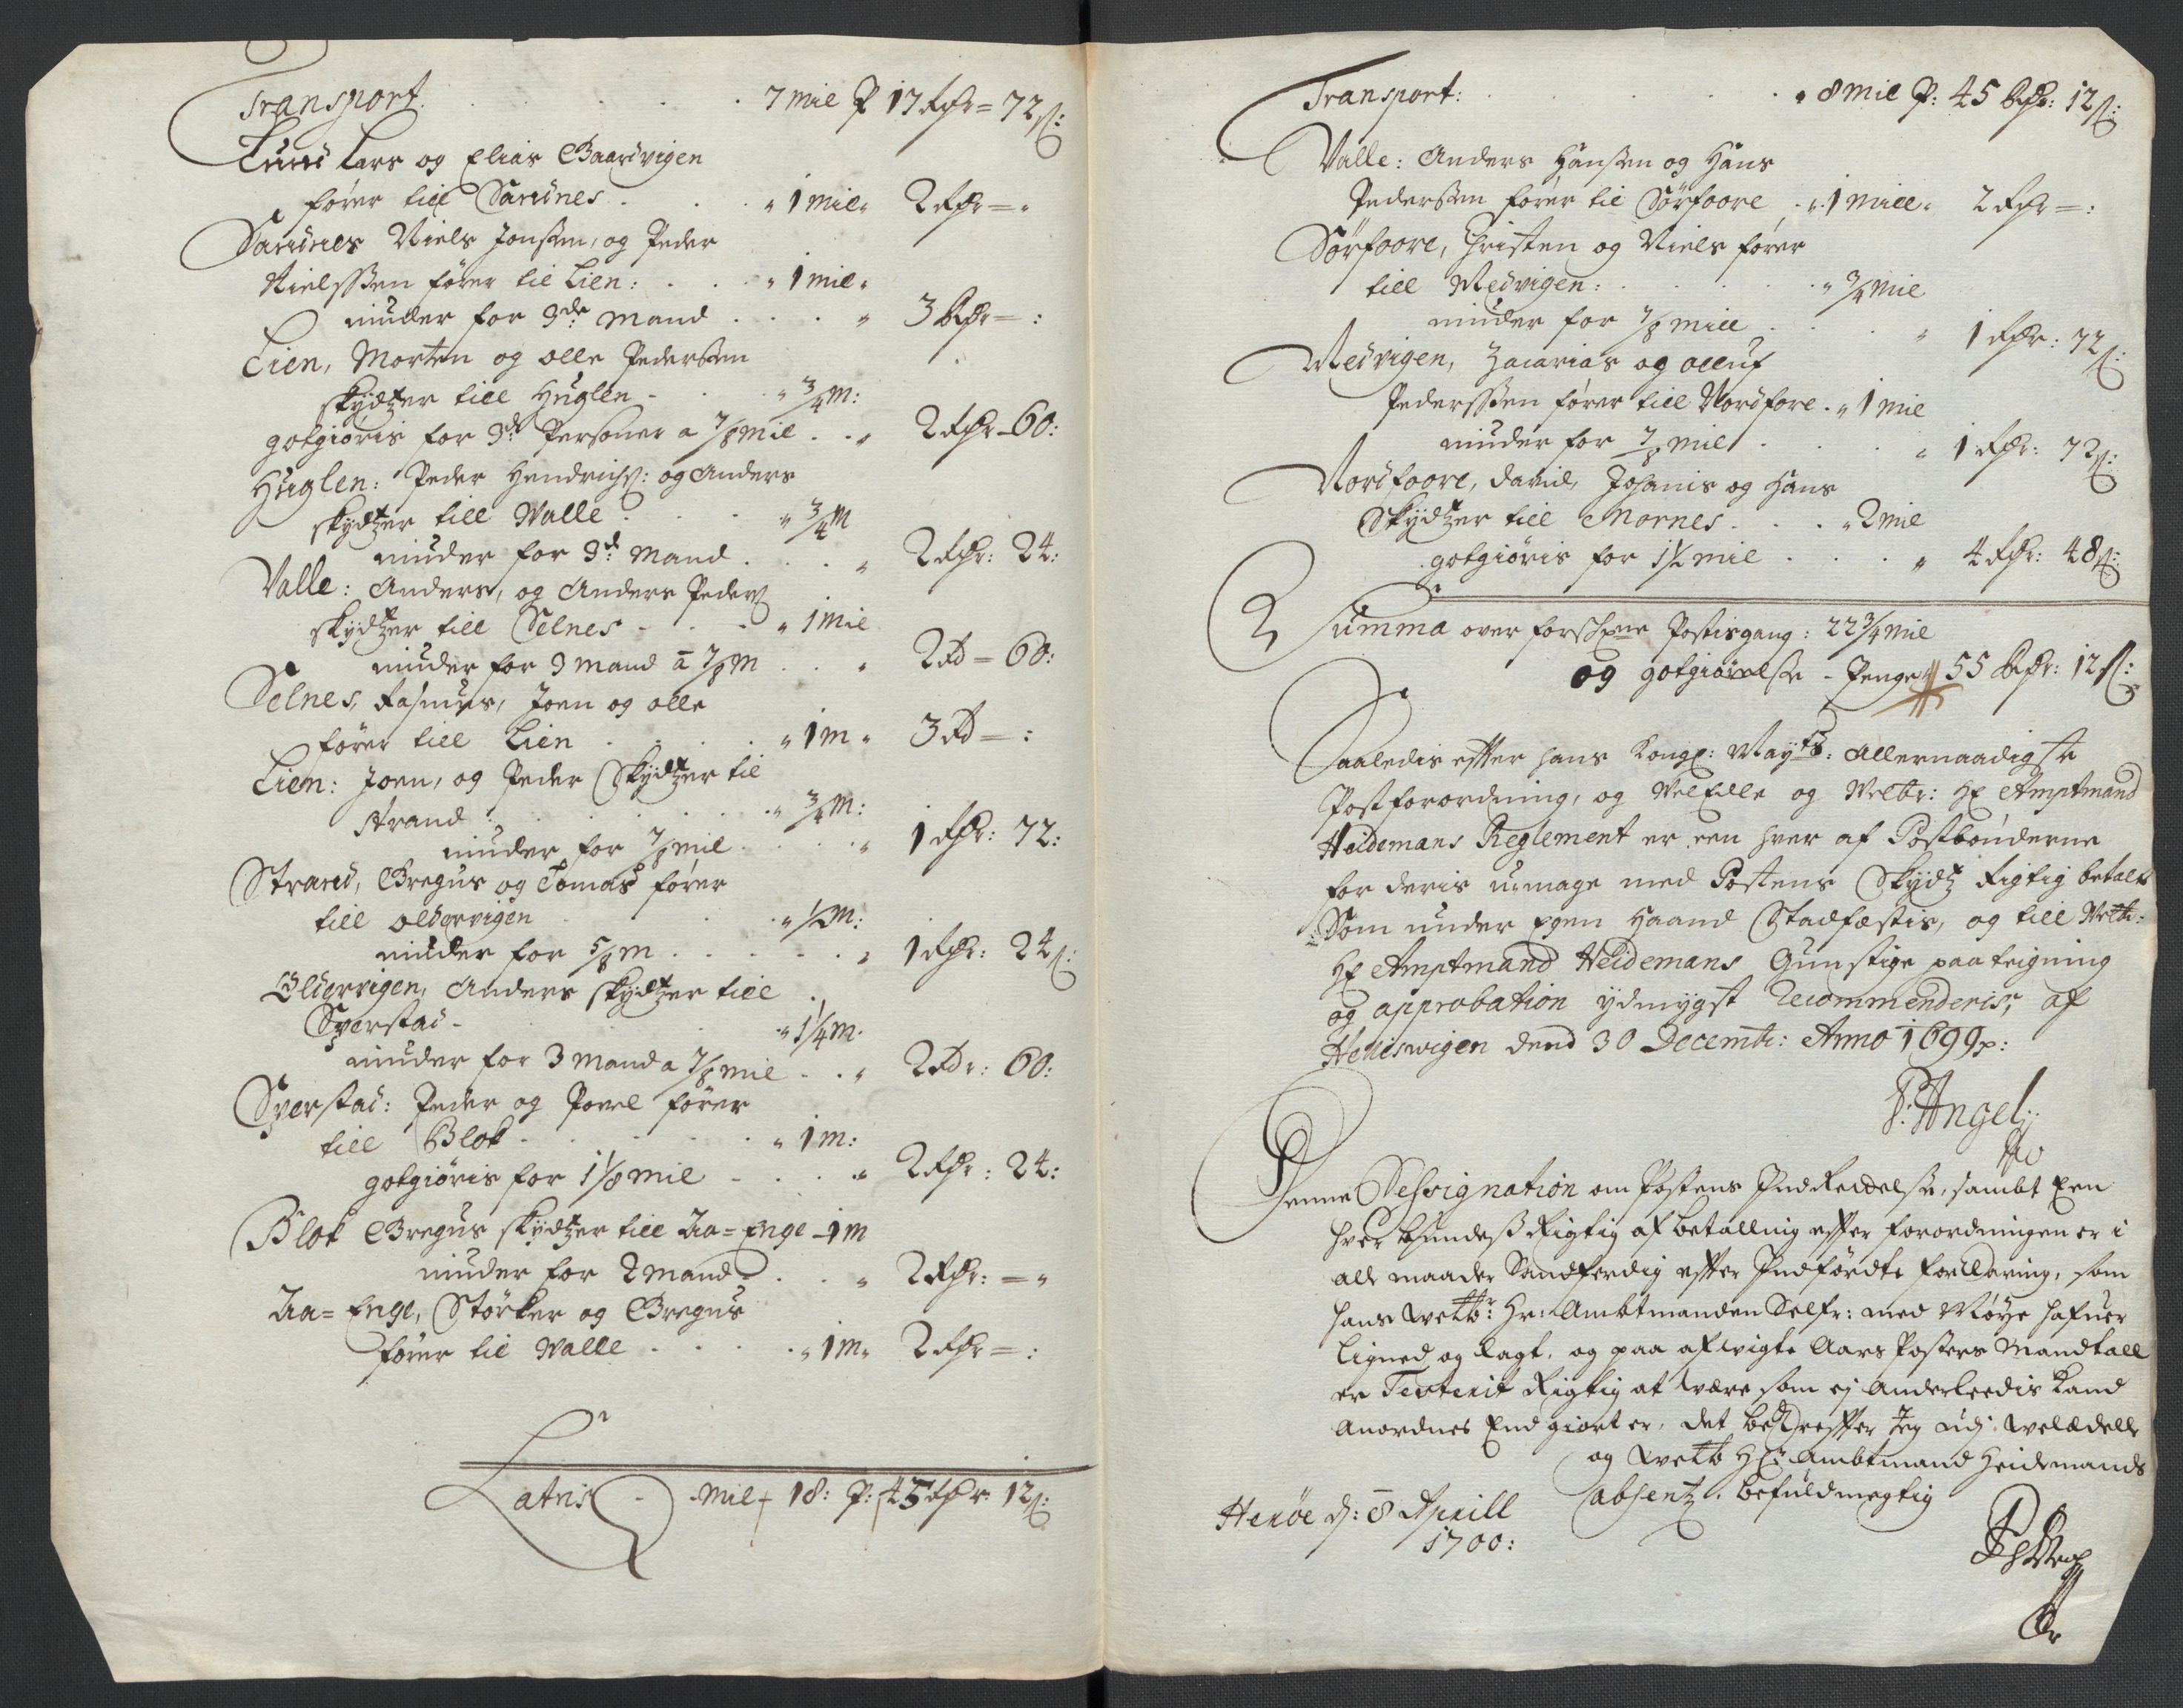 Transport. 7 mil P 17 Rdr = 72 ß:
Lund Lars og Elias Baardvigen
fører till Sandnes. 1 mil 2 Rdr =
Sandnes Niels Jonsøn, og Peder
Nielssøn fører til Lien: 1 mil
niuder for 3de mand 3 Rdr = :
Lien, Morten og olle Pedersøn
skydtzer till Huglen 3/4 M:
gotgiøris for 3de Personer a 7/8 mil 2 Rdr 60:
Huglen: Peder Hendrichß: og Anders
skydtzer till Walle 3/4 M
niuder for 3de mand 2 Rdr: 24:
Valle: Anders, og Anders Pederß
skydtzer till Selnes 1 mil
niuder for 3 mand a 7/8 M 2 Rd = 60:
Selnes, Rasmus, Joen og olle
fører till Lien 1 m 3 Rd = :
Lien: Joen, og Peder Skydtzer til
strand 3/4 M:
niuder for 7/8 mil 1 Rdr: 72:
Strand, Gregus og Tomas fører
till oldervigen 1/2 M:
niuder for 5/8 m 1 Rdr: 24 ß:
Oldervigen, Anders skydtzer till
Sverstad 1 1/4 M.
niuder for 3 mand a 7/8 mil 2 Rdr: 60:
Sverstad: Peder og Povel fører
till Blok 1 m:
gotgiøris for 1 1/8 mil 2 Rdr: 24:
Blok Gregus skydtzer till Aa= Enge 1 m
niuder for 2 mand 2 Rdr: =
Aa= Enge, Størker og Gregus
fører til Walle 1 m 2 Rdr = :
Latris Mil 18: P: 45 Rdr 12 ß:
Transport: 8 mil P: 45 Rdr: 12 ß:
Valle: Anders Hansøn og Hans
Pedersøn fører til Sørfoore 1 mill 2 Rdr = :
Sørfoore, Christen og Niels fører
till Medvigen: 3/4 mil
niuder for 7/8 mill 1 Rdr: 72 ß:
Medvigen, Zacarias og olluf
Pederssøn fører till Nordfore 1 mil
niuder for 7/8 mil 1 Rdr: 72 ß:
Nordfoore, David, Johanis og Hans
Skydtzer till Nornes 2 mil
gotgiøris for 1 1/2 mil 4 Rdr: 48 ß:
Summa over forschrefne Postisgang: 22 3/4 mil
og gotgiørelse Penge 55 Rdr: 12 ß:
Saaledis effter hans Kongl: Mayts: Allernaadigste
Postforordning, og WelEdle og Welbr: Hr Amptmand
Heidemans Reglement er een hver af Postbønderne
for deris umage med Postens Skydtz Rigtig betalt
Som under Egen Haand Stadfæstis, og till Welb:
Hr Amptmand Heidemans Gunstige paateigning
og approbation ydmygst Recommenderis, af
dend 30 Decemb: Anno 1699
P: Angel
Denne Designation om Postens Ind Reedelse, sambt Een
hver Bundeß Rigtig af betalling effter forordningen er i
alle maader Sandferdig effter Indførdte forklaring, som
hans Welb: Hr: Ambtmanden Selfr: med Nøye hafuer
Ligned og lagt, og paa afvigte Aars Posters Mandtall
er Rigtig at være som ej Anderleedis kand
Anordnes End giort er, det bekrefter Jeg udj Welædelle
og Welb Hr Ambtmand Heidemands
absentz, befuldmegtig
d: 8 Aprill
1700: